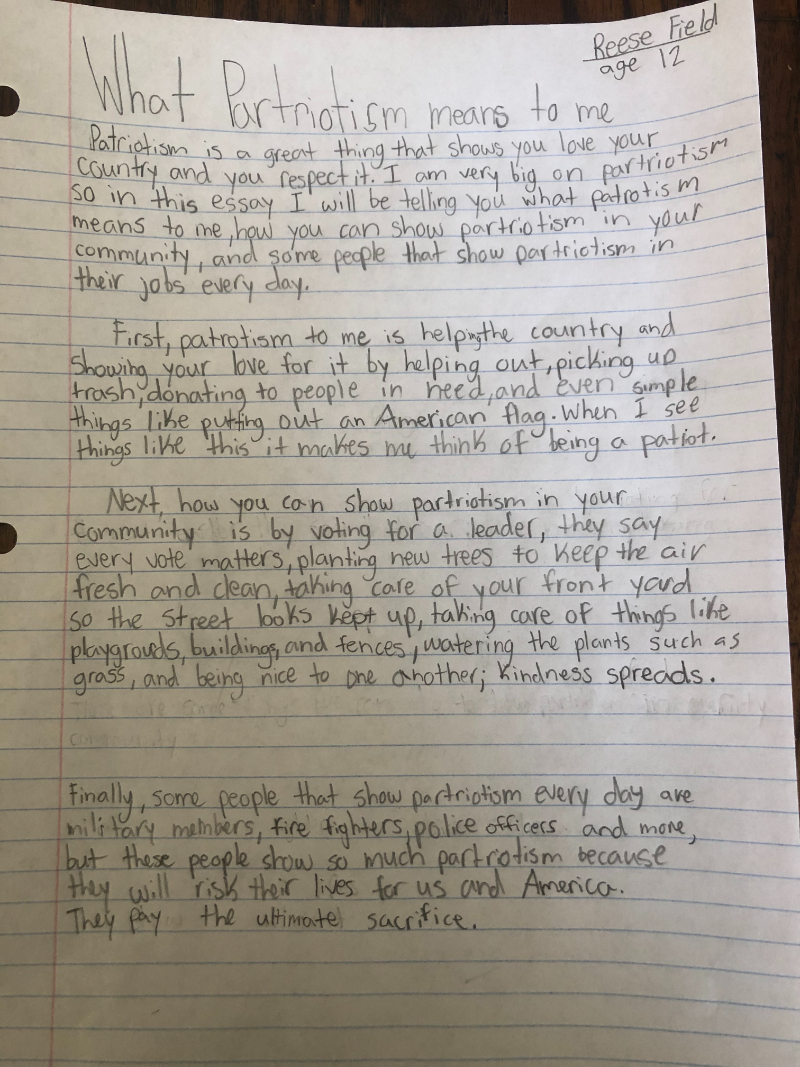 Reese Field
age 12
What Partriotism means to me
Patriotism is a great thing that shows you love your
country and you respect it. I am very big on partriotism
so in this essay I will be telling you what patrotism
means to me, how you can show partriotism in your
community, and some people that show partriotism in
their jobs every day.
First, patrotism to me is helping the country and
showing your love for it by helping out, picking up
trash, donating to people in need, and even simple
things like putting out an American flag. When I see
things like this it makes me think of being a patiot.
Next, how you can show partriotism in your
community is by voting for a leader, they say
every vote matters, planting new trees to keep the air
fresh and clean, taking care of your front yard
so the street looks kept up, taking care of things like
playgrouds, buildings, and fences, watering the plants such as
grass, and being nice to one another; kindness spreads.
Finally, some people that show partriotism every day are
military members, fire fighters, police officers and more,
but these people show so much partriotism because
they will risk their lives for us and America.
They pay the ultimate sacrifice.